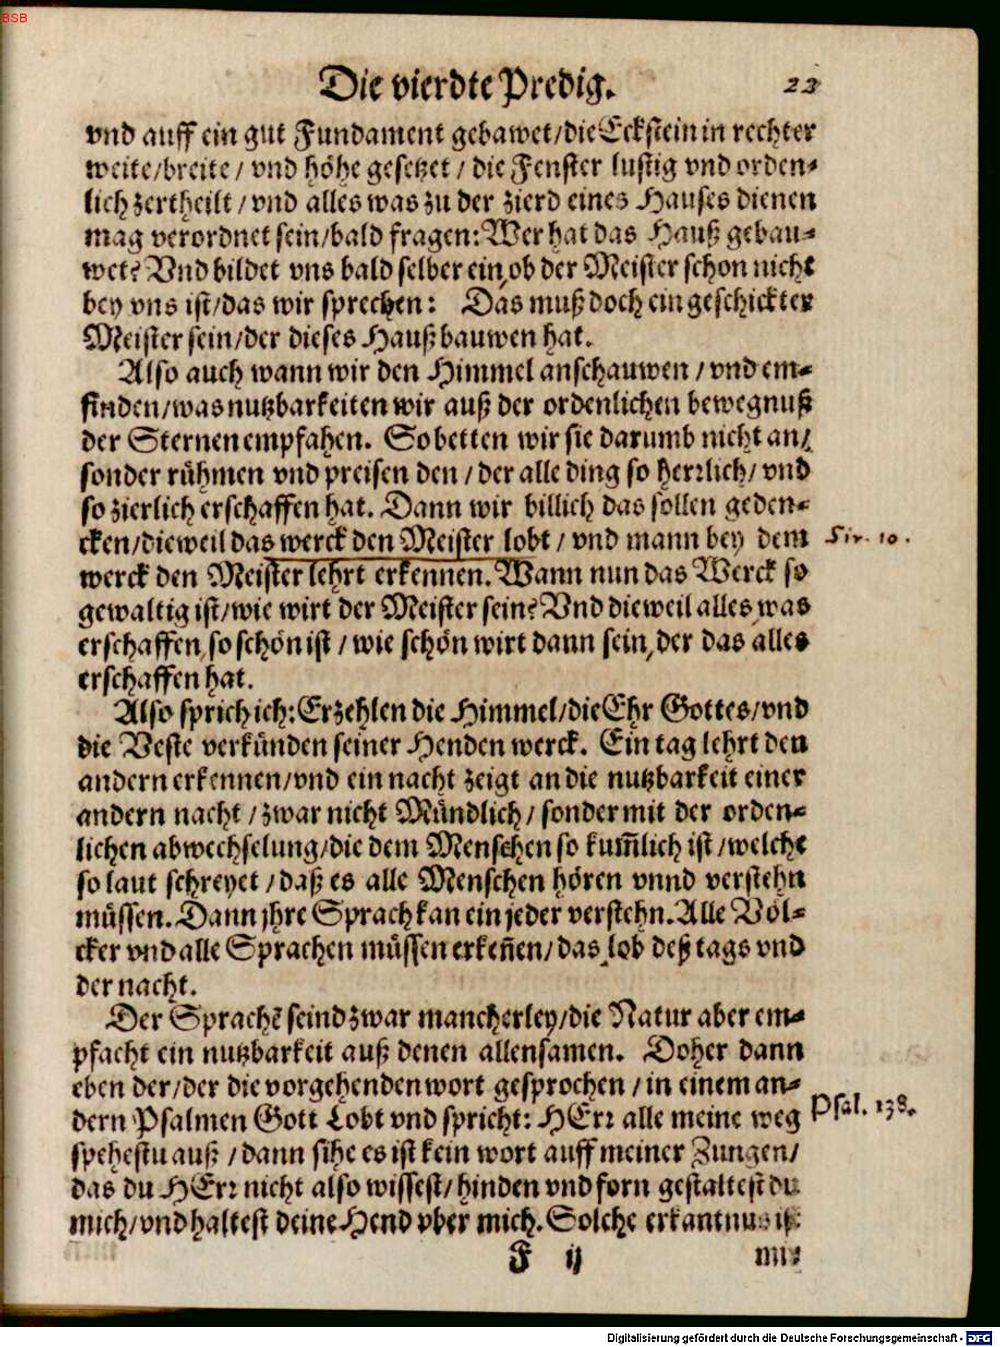 BSB
Die vierdte Predig. 23
vnd auff ein gut Fundament gebawet/die Eckstein in rechter
weite/breite/ vnd höhe gesetzet / die Fenster lustig vnd orden⸗
lich zertheilt / vnd alles was zu der zierd eines Hauses dienen
mag verordnet sein/bald fragen: Wer hat das Hauß gebau⸗
wet? Vnd bildet vns bald selber ein, ob der Meister schon nicht
bey vns ist/das wir sprechen: Das muß doch ein geschickter
Meister sein/der dieses Hauß bauwen hat.
Also auch wann wir den Himmel anschauwen / vnd em⸗
finden/was nutzbarkeiten wir auß der ordenlichen bewegnuß
der Sternen empfahen. So betten wir sie darumb nicht an/
sonder rühmen vnd preisen den / der alle ding so herrlich/ vnd
so zierlich erschaffen hat. Dann wir billich das sollen geden⸗
cken/dieweil das werck den Meister lobt / vnd mann bey dem Sir. 10.
werck den Meister lehrt erkennen. Wann nun das Werck so
gewaltig ist/wie wirt der Meister sein? Vnd dieweil alles, was
erschaffen, so schön ist / wie schön wirt dann sein, der das alles
erschaffen hat.
Also sprich ich: Erzehlen die Himmel/die Ehr Gottes/vnd
die Veste verkünden seiner Henden werck. Ein tag lehrt den
andern erkennen/vnd ein nacht zeigt an die nutzbarkeit einer
andern nacht / zwar nicht Mündlich / sonder mit der orden⸗
lichen abwechselung/die dem Menschen so kum̃lich ist /welche
so laut schreyet / daß es alle Menschen hören vnnd verstehn
müssen. Dann jhre Sprach kan ein jeder verstehn. Alle Völ⸗
cker vnd alle Sprachen müssen erkeñen/das lob deß tags vnd
der nacht.
Der Sprachẽ seind zwar mancherley/die Natur aber em⸗
pfacht ein nutzbarkeit auß denen allensamen. Doher dann
eben der/der die vorgehenden wort gesprochen / in einem an⸗
dern Psalmen Gott Lobt vnd spricht: HErr alle meine weg Psal. 138.
spehestu auß / dann sihe es ist kein wort auff meiner Zungen/
das du HErr nicht also wissest/ hinden vnd forn gestaltest du
mich/vnd haltest deine Hend vber mich. Solche erkantnus ist
F ij
Digitalisierung gefördert durch die Deutsche Forschungsgemeinschaft - DFG